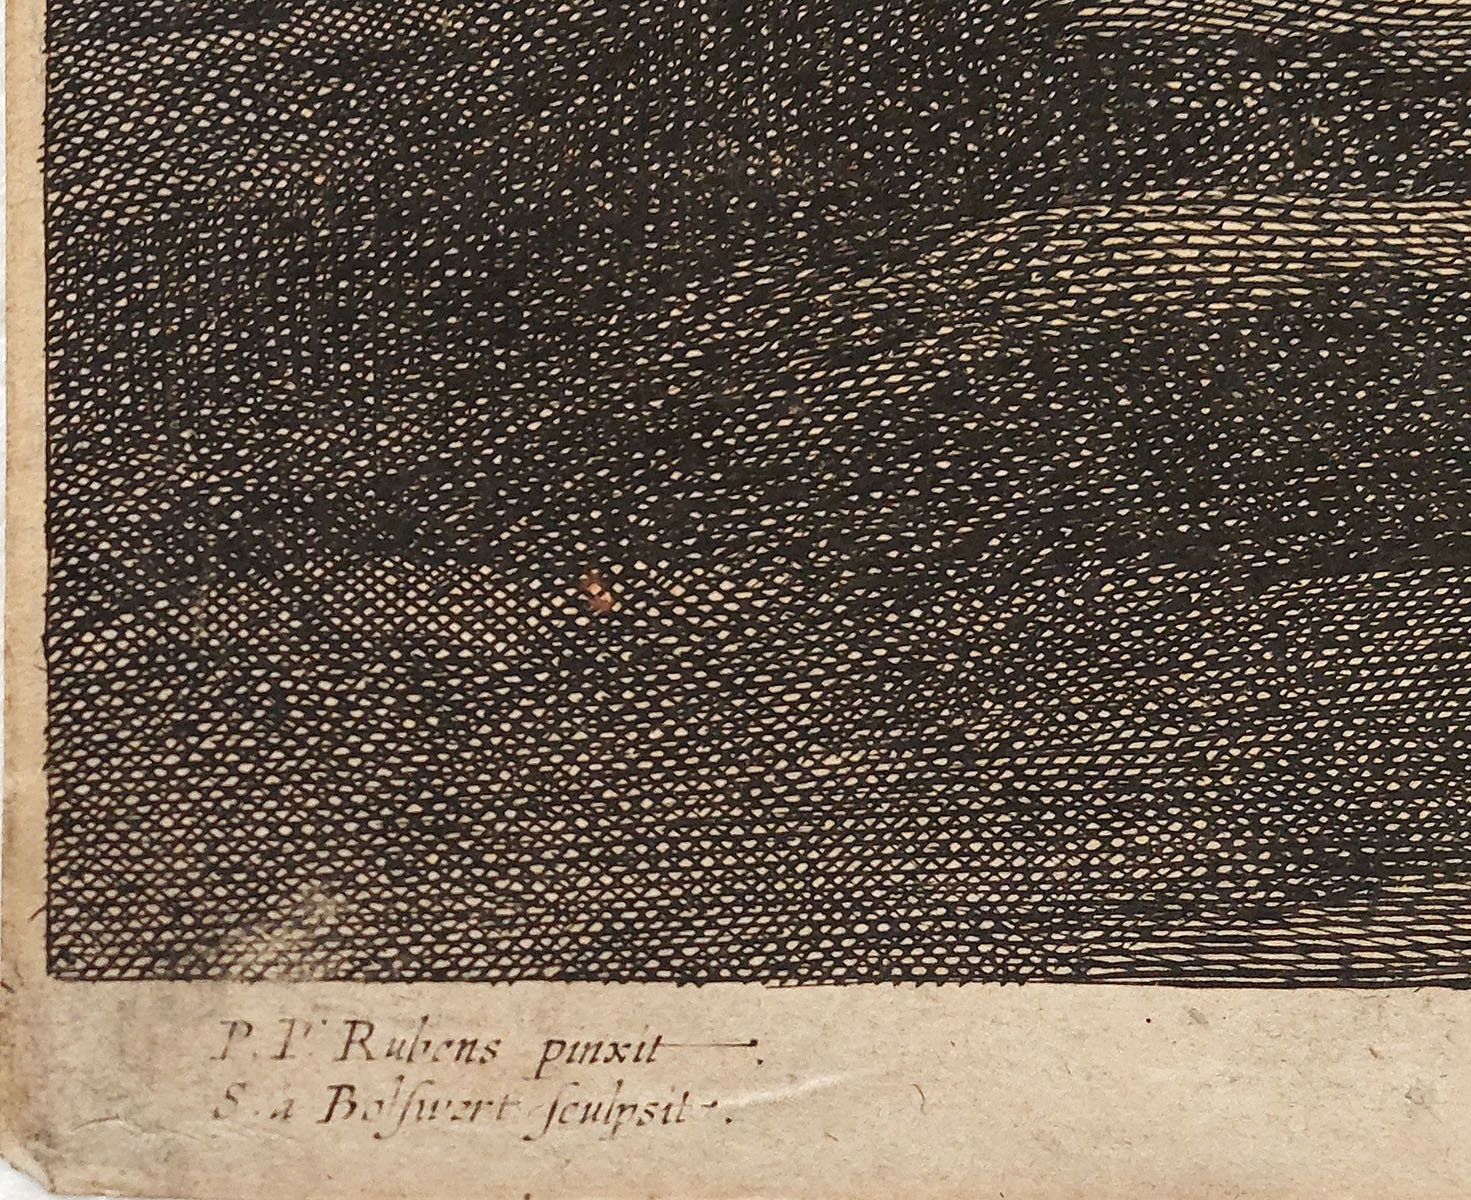 P. P. Rubens pinxit.
S. a Bolſwert ſculpsit.